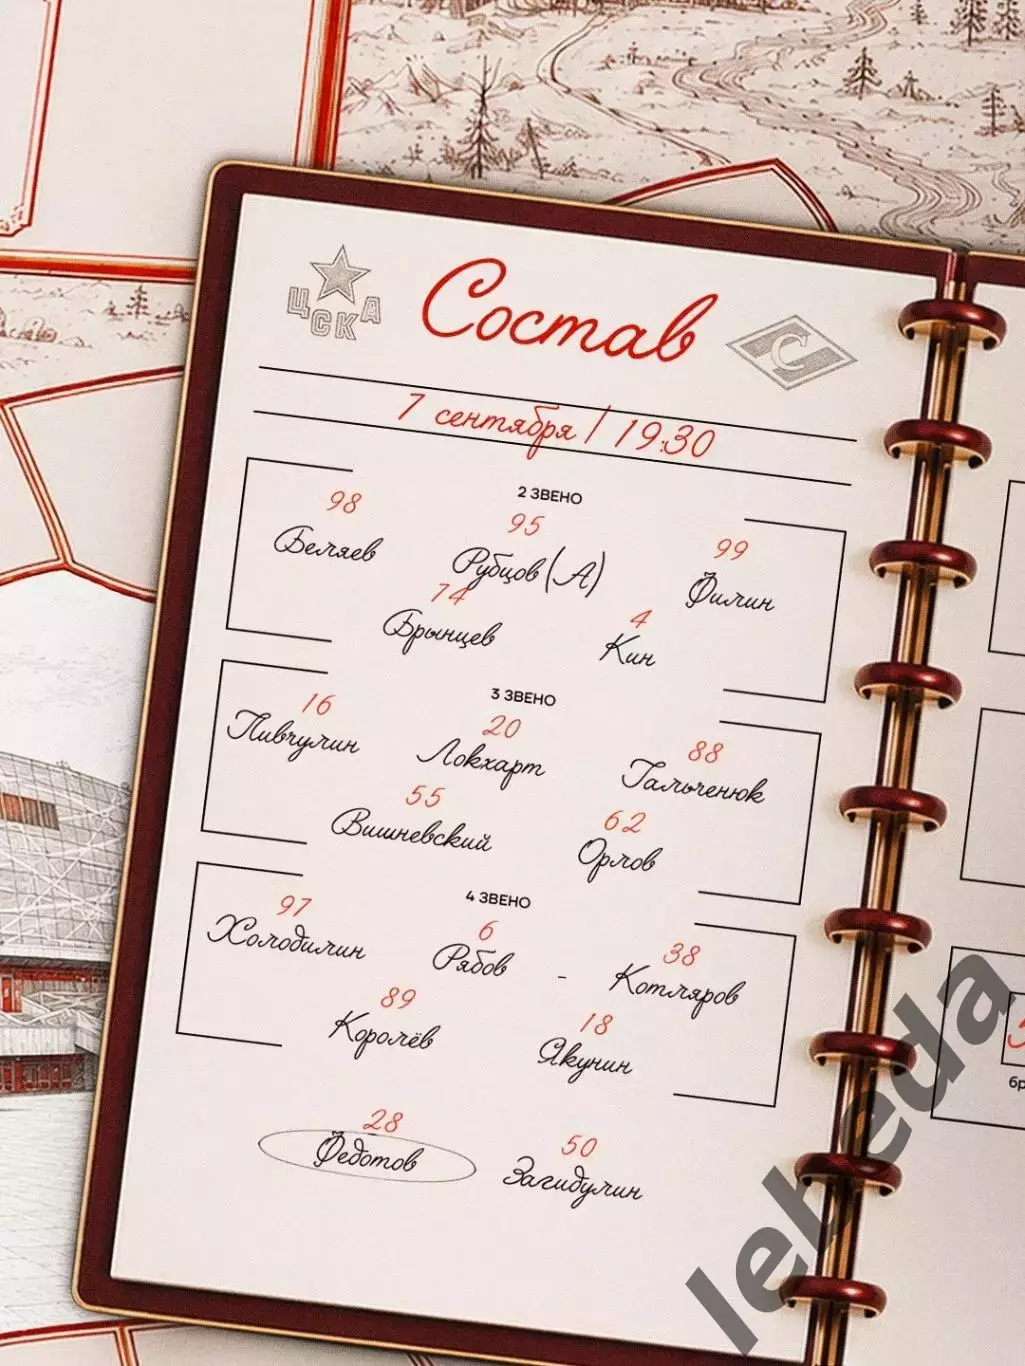 ЦСКА
Состав
С
7 сентября / 19:30
2 ЗВЕНО
98 95 99
Беляев Рубцов (А) Филин
74 4
Брынцев Кин
3 ЗВЕНО
16 20 88
Пивчулин Локхарт Гальченюк
55 62
Вишневский Орлов
4 ЗВЕНО
97 6 38
Холодилин Рябов - Котляров
89 18
Королёв Якунин
28 50
Федотов Загидулин
lebeda